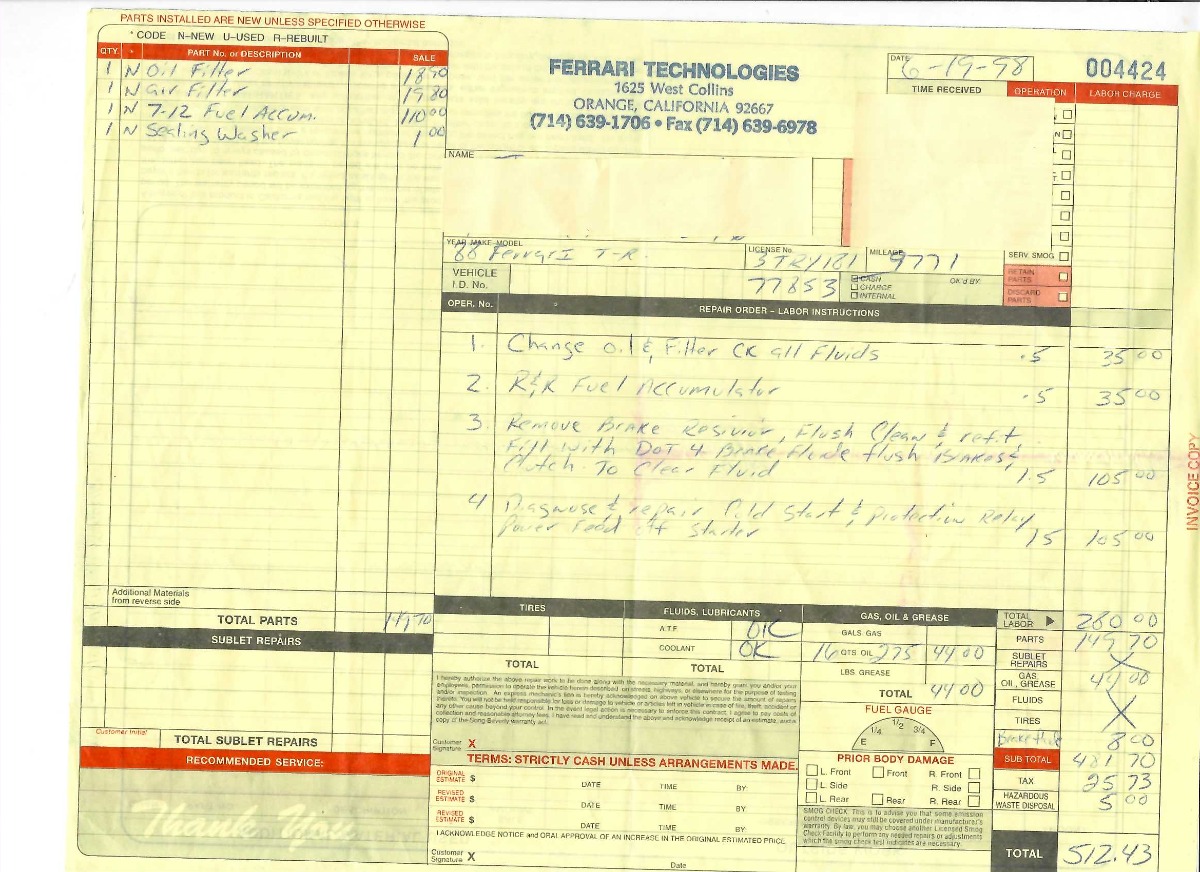 PARTS INSTALLED ARE NEW UNLESS SPECIFIED OTHERWISE
* CODE N–NEW U–USED R–REBUILT
QTY. * PART No. or DESCRIPTION SALE
1 N Oil Filter 18 90
1 N Air Filter 19 80
1 N 7-12 Fuel Accum. 110 00
1 N Sealing Washer 1 00
Additional Materials
from reverse side
TOTAL PARTS 149 70
SUBLET REPAIRS
Customer Initial
TOTAL SUBLET REPAIRS
RECOMMENDED SERVICE:
FERRARI TECHNOLOGIES
1625 West Collins
ORANGE, CALIFORNIA 92667
(714) 639-1706 • Fax (714) 639-6978
DATE 6-19-98
004424
TIME RECEIVED OPERATION LABOR CHARGE
NAME
YEAR MAKE–MODEL 88 Ferrari T-R.
LICENSE No. 3TRY181
MILEAGE 9771
SERV. SMOG
VEHICLE
I.D. No. 77853
CASH
CHARGE
INTERNAL
OK'd BY:
RETAIN
PARTS
DISCARD
PARTS
OPER. No. REPAIR ORDER – LABOR INSTRUCTIONS
1. Change oil & Filter CK all Fluids .5 35 00
2. R&R Fuel Accumulator .5 35 00
3. Remove Brake Resivior, Flush Clean & refit
Fill with DOT 4 Brake Fluide flush Brakes &
Clutch To Clear Fluid 1.5 105 00
4 Diagnose & repair Cold Start & protection Relay
Power Feed off Starter 1.5 105 00
INVOICE COPY
TIRES
TOTAL
FLUIDS, LUBRICANTS
A.T.F. OK
COOLANT OK
TOTAL
GAS, OIL & GREASE
GALS. GAS
16 QTS. OIL 275 44.00
LBS. GREASE
TOTAL 44 00
TOTAL
LABOR 280 00
PARTS 149 70
SUBLET
REPAIRS X
GAS
OIL, GREASE 44 00
FLUIDS
TIRES X
Brake fluid 8 00
SUB TOTAL 481 70
TAX 25 73
HAZARDOUS
WASTE DISPOSAL 5 00
TOTAL 512.43
I hereby authorize the above repair work to be done along with the necessary material, and hereby grant you and/or your
employees, permission to operate the vehicle herein described on streets, highways, or elsewhere for the purpose of testing
and/or inspection. An express mechanic's lien is hereby acknowledged on above vehicle to secure the amount of repairs
thereto. You will not be held responsible for loss or damage to vehicle or articles left in vehicle in case of fire, theft, accident or
any other cause beyond your control. In the event legal action is necessary to enforce this contract, I agree to pay costs of
collection and reasonable attorney fees. I have read and understand the above and acknowledge receipt of an estimate, and a
copy of the Song-Beverly warranty act.
Customer
Signature: X
TERMS: STRICTLY CASH UNLESS ARRANGEMENTS MADE.
ORIGINAL
ESTIMATE $
DATE TIME BY:
REVISED
ESTIMATE $
DATE TIME BY:
REVISED
ESTIMATE $
DATE TIME BY:
I ACKNOWLEDGE NOTICE and ORAL APPROVAL OF AN INCREASE IN THE ORIGINAL ESTIMATED PRICE.
Customer
Signature X
Date
FUEL GAUGE
E 1/4 1/2 3/4 F
PRIOR BODY DAMAGE
L. Front Front R. Front
L. Side R. Side
L. Rear Rear R. Rear
SMOG CHECK: This is to advise you that some emission
control devices may still be covered under manufacturer's
warranty. By law, you may choose another Licensed Smog
Check Facility to perform any needed repairs or adjustments
which the smog check test indicates are necessary.